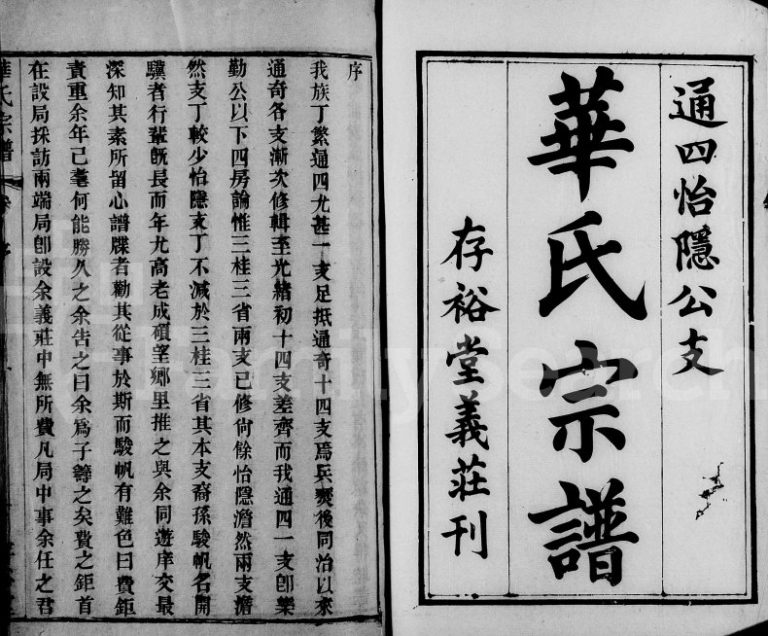 通四怡隱公支
華氏宗譜
存裕堂義莊刊
序
我族丁繁通四尤甚一支足抵通奇十四支爲兵燹後同治以來
通奇各支漸次修輯至光緒初十四支差齊而我通四一支卽樂
勤公以下四房論惟三桂三省兩支已修尙餘怡隱澹然兩支澹
然支丁較少怡隱支丁不減於三桂三省其本支裔孫駿帆名開
驥者行輩旣長而年尤高老成碩望鄉里推之與余同遊庠交最
深知其素所留心譜牒者勸其從事於斯而駿帆有難色曰費鉅
責重余年已耄何能勝久之余告之曰余爲子籌之矣費之鉅首
在設局採訪兩端局卽設余義莊中無所費凡局中事余任之君
華氏宗譜 序
FamilySearch